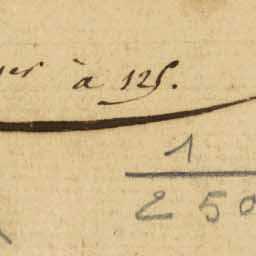 à 125.
1
250